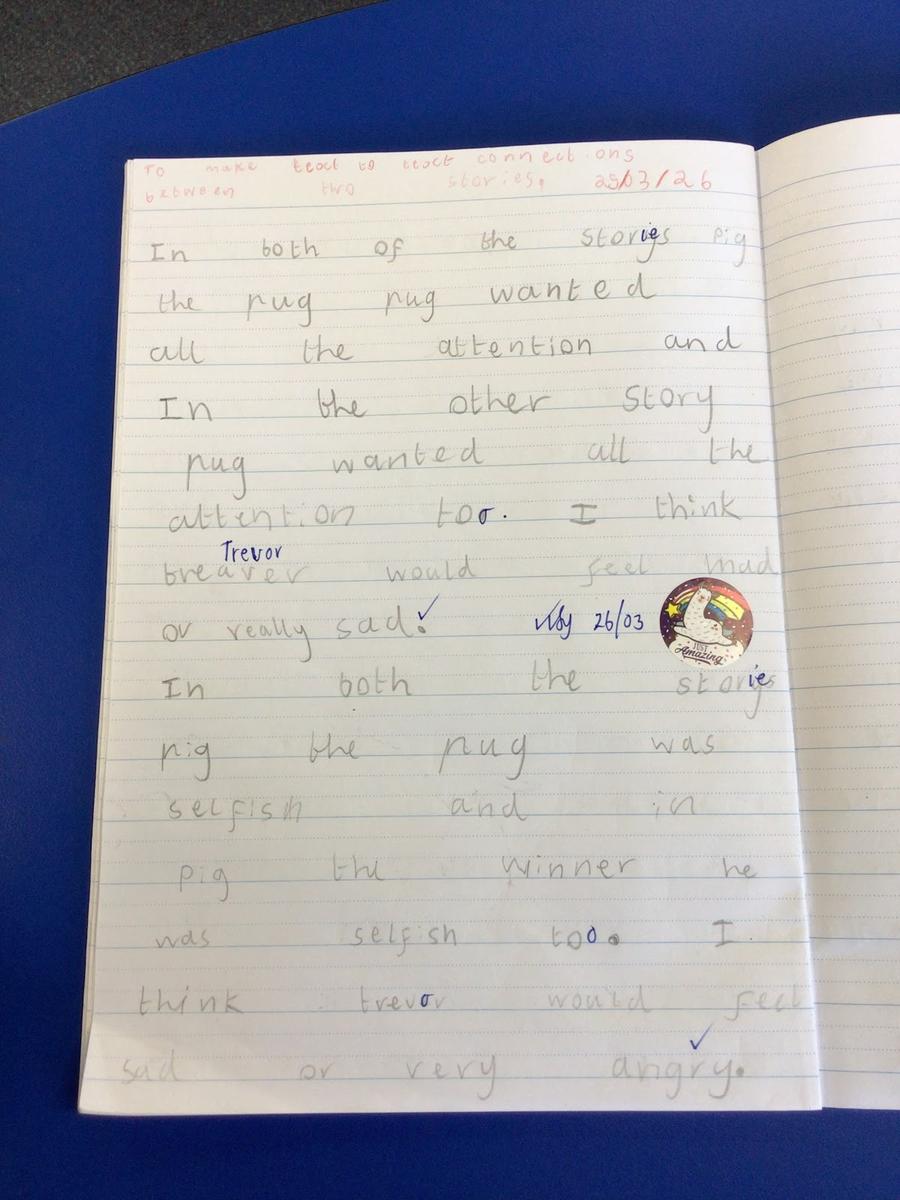 To make text to text connections
between two stories. 25/03/26
In both of the stories pig
the pug pug wanted
all the attention and
In the other story
pug wanted all the
attention too. I think
Trevor
breaver would feel mad
or really sad. ✓ 26/03
JUST
Amazing
In both the stories
pig the pug was
selfish and in
pig the winner he
was selfish too. I
think trevor would feel
sad or very angry. ✓